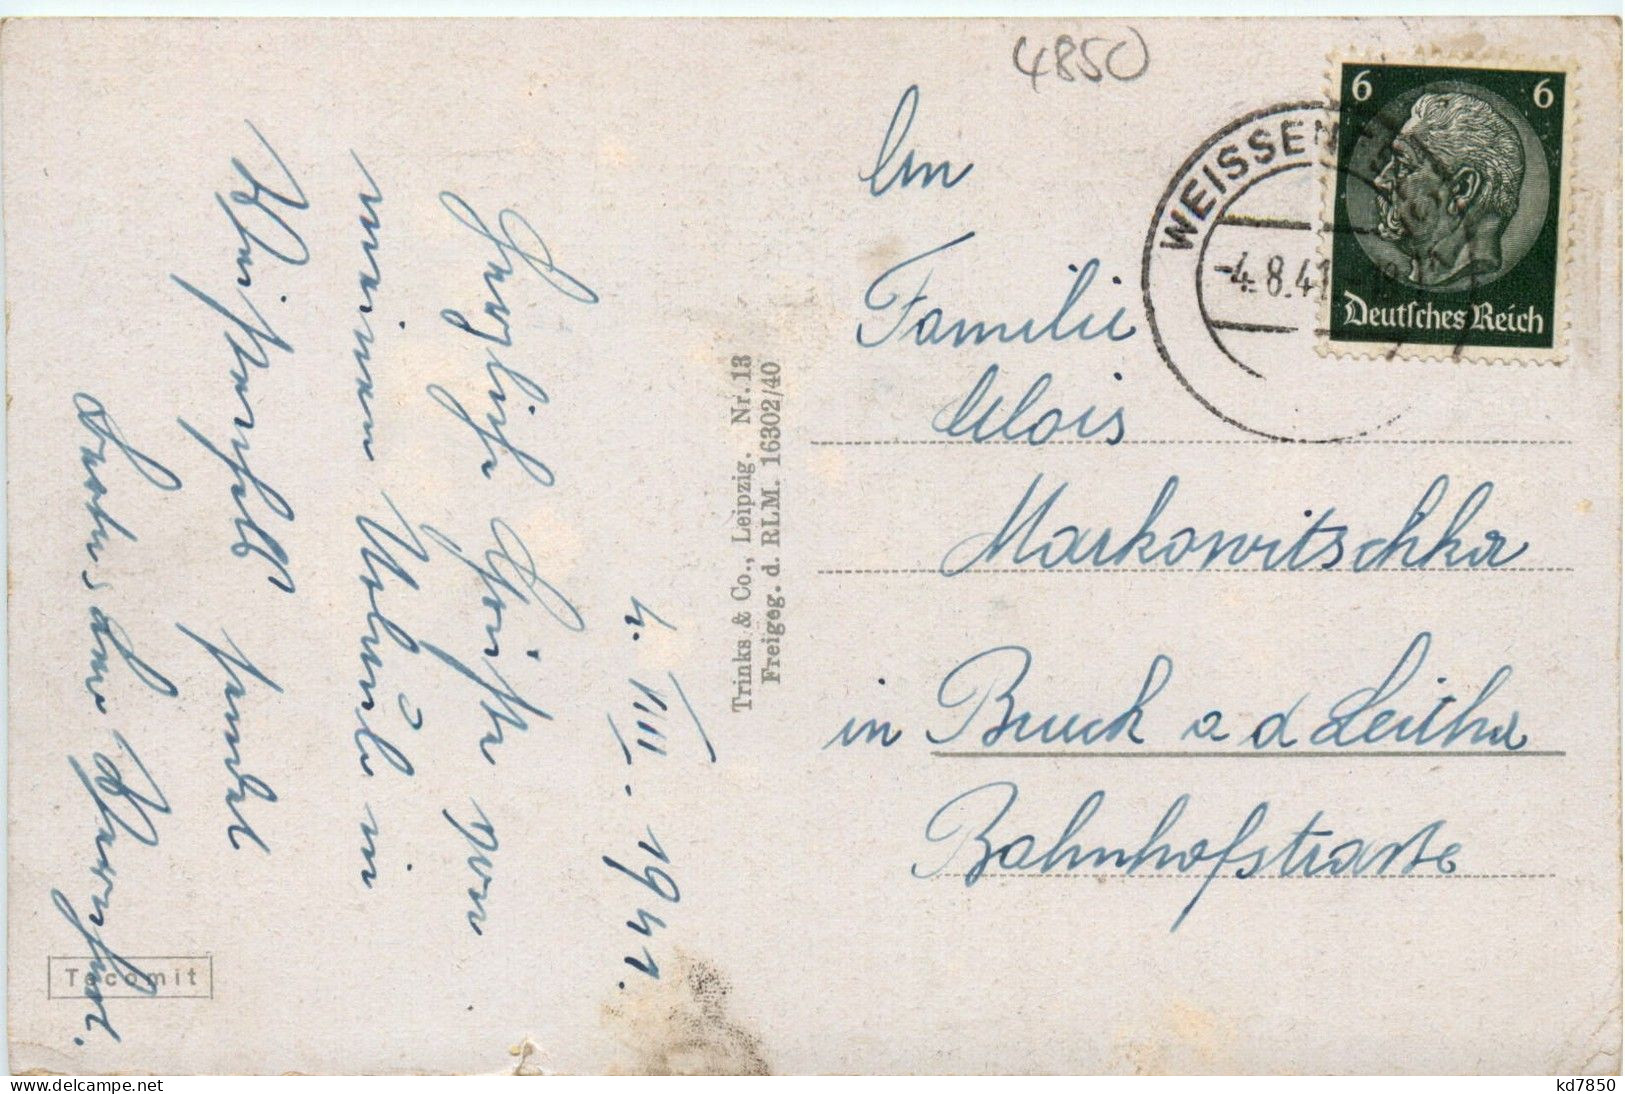 4850
6 6
Deutsches Reich
WEISSEN
-4.8.41
An
Familie
Alois
Markowitschka
in Bruck a d Leitha
Bahnhofstrasse
Trinks & Co., Leipzig. Nr. 13
Freigeg. d. RLM. 16302/40
4. VIII. 1941.
Herzliche Grüße von
meinem Urlaub in
Weißenfels sendet
Tecomit
kd7850